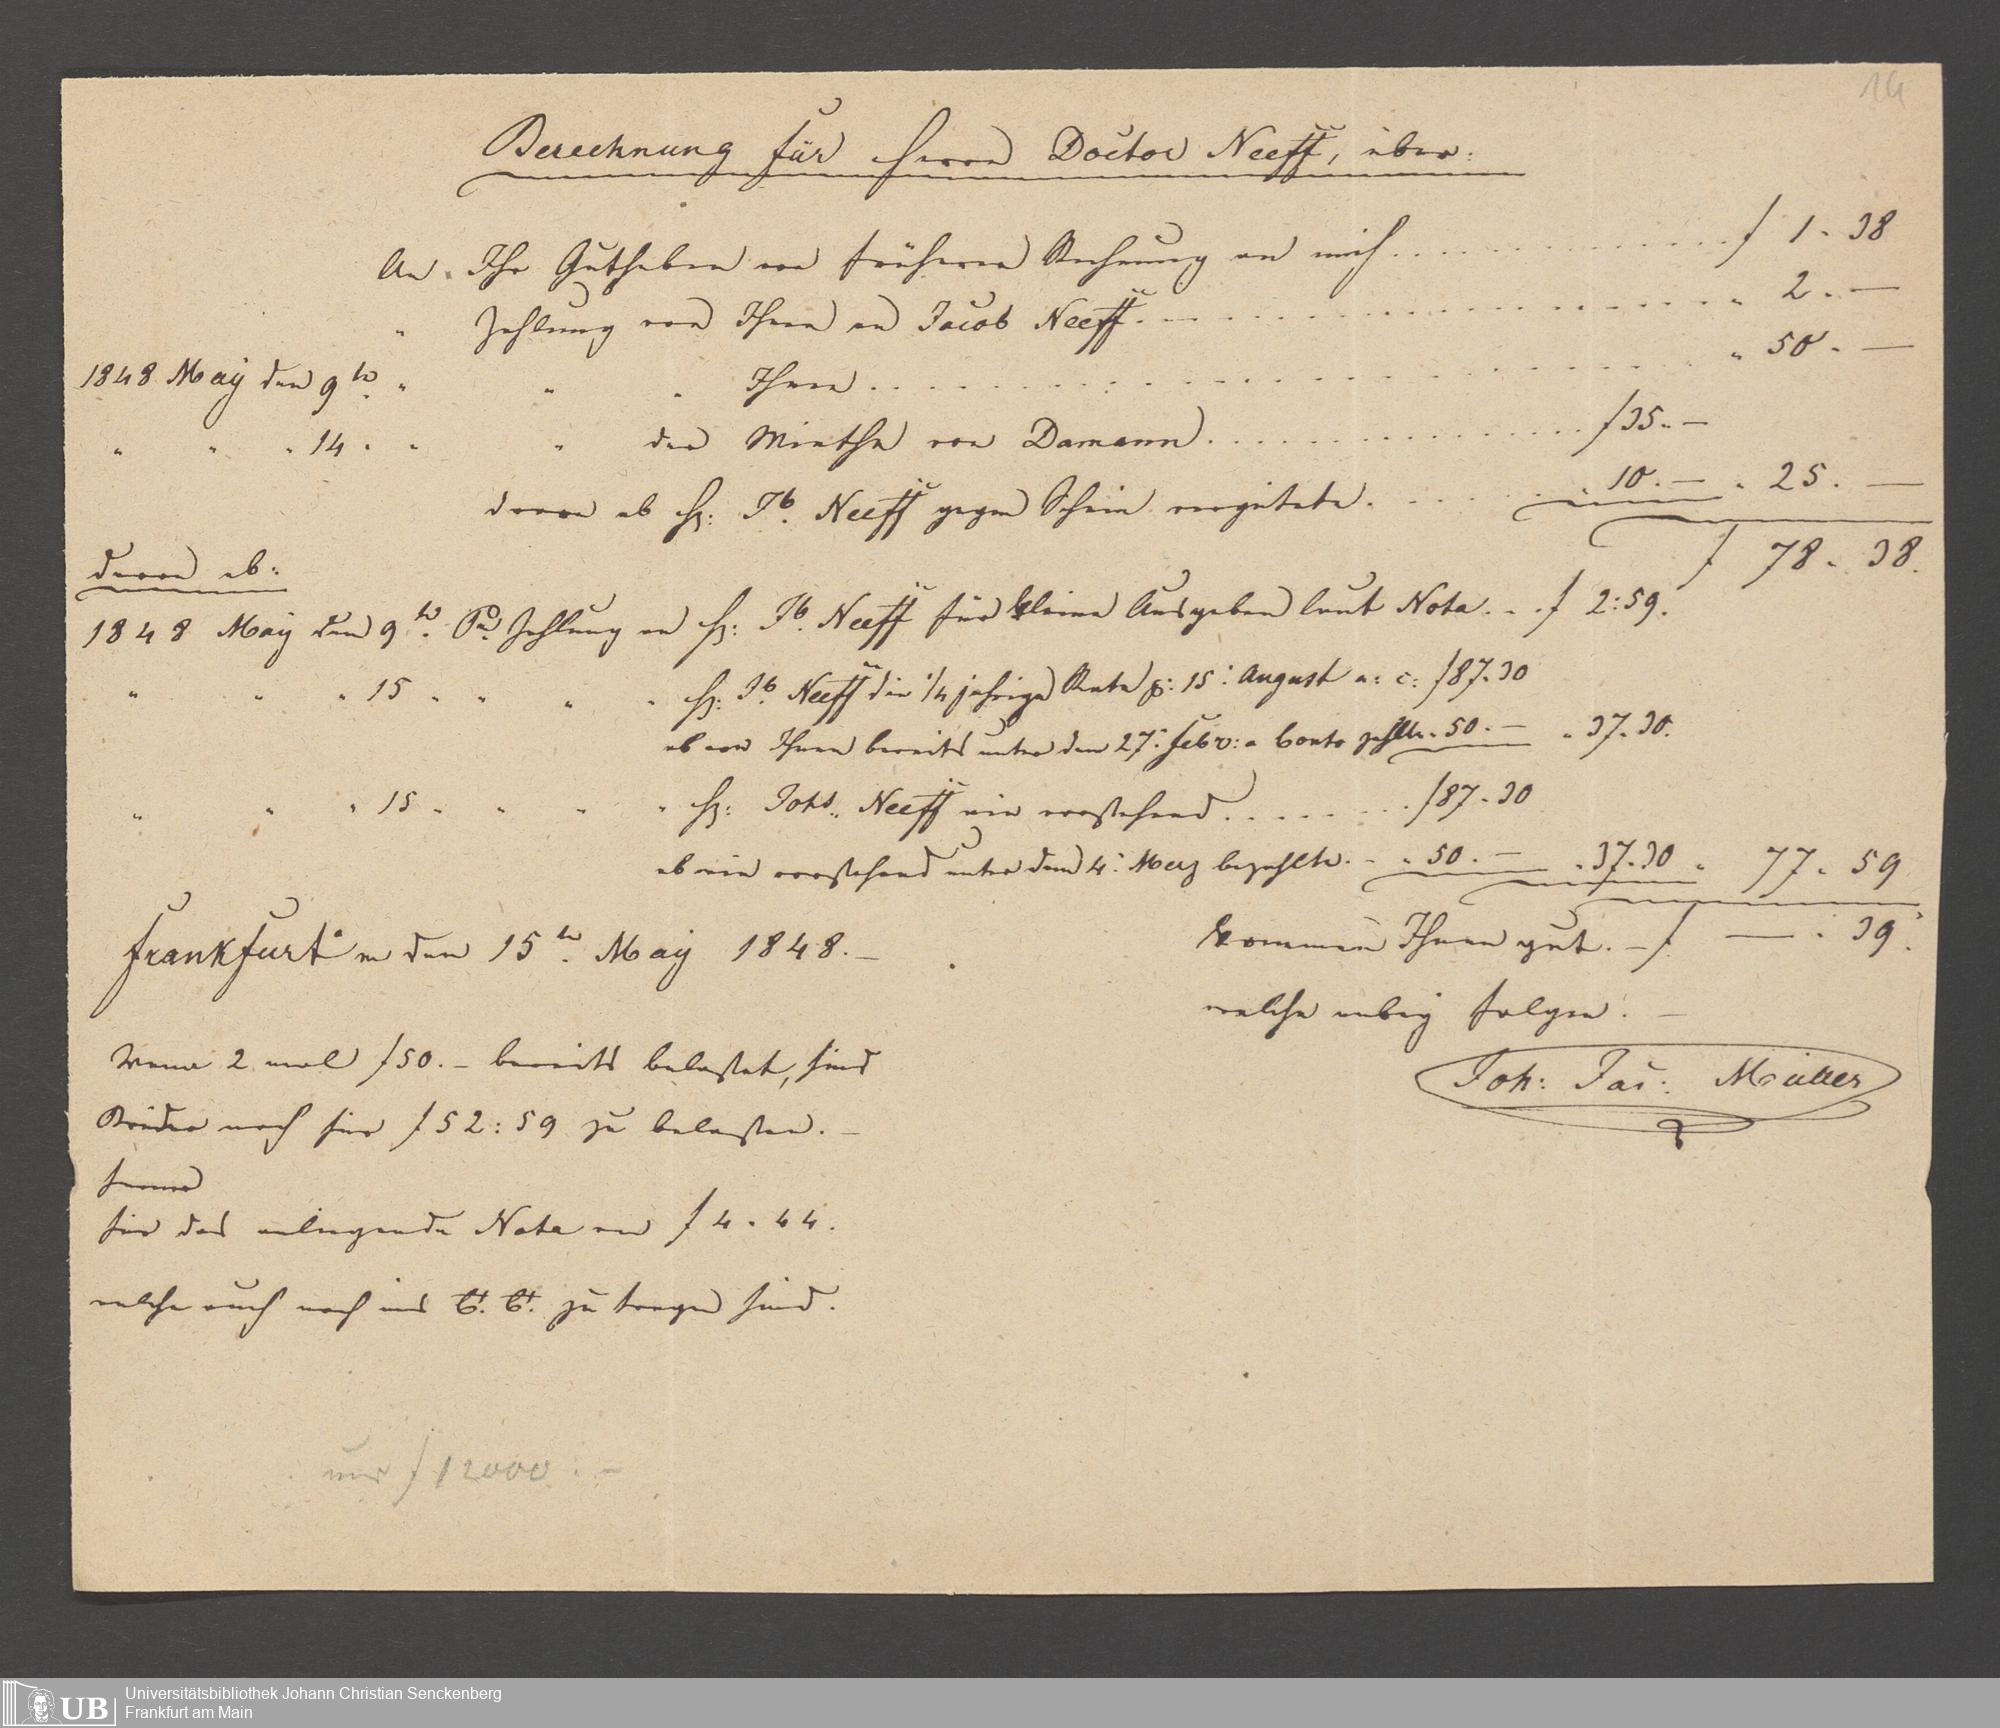 14
Berechnung für Herrn Doctor Neeff, über:
An Ihr Guthaben von früherer Rechnung an mich . . . . . . . . . . . . f 1 „ 38
„ Zahlung von Ihnen an Jacob Neeff . . . . . . . . . . . . . . . . „ 2 . —
1848 May den 9te. „ „ „ Ihnen . . . . . . . . . . . . . . . . „ 50 . —
„ „ „ 14 . „ „ der Miethe von Damann . . . . . . . . . . . f 35 „ —
davon ab Hr: Jb. Neeff gegen Schein vergütete . . . . . . „ 10 . — „ 25 . —
f 78 „ 38.
davon ab:
1848 May den 9te. Pr Zahlung an Hr: Jb. Neeff für kleine Ausgaben laut Nota . . . f 2:59.
„ „ „ 15 „ „ „ „ Hr: Jb. Neeff die 1/4 jährige Rate p: 15. August a: c: f 87 „ 30
ab von Ihnen bereits unter dem 27. Febr: a Conto gezahlte „ 50 . — „ 37 „ 30.
„ „ „ 15 „ „ „ „ Hr: Johs. Neeff wie vorstehend . . . . . . . f 87 „ 30
ab wie vorstehend unter dem 4. Merz bezahlte . „ „ 50 . — „ 37 „ 30 „ 77 „ 59
Frankfurt a/m den 15te. May 1848. —
kommen Ihnen gut . — f. — „ 39.
welche anbey folgen. —
Joh: Jac: Müller
Wenn 2 mal f 50. — bereits belastet, sind
Brüder noch für f 52:59 zu belasten. —
ferner
für das anliegende Nota von f 4 „ 44.
welche auch noch ins C. C. zu tragen sind.
nur f 12000 . —
UB
Universitätsbibliothek Johann Christian Senckenberg
Frankfurt am Main